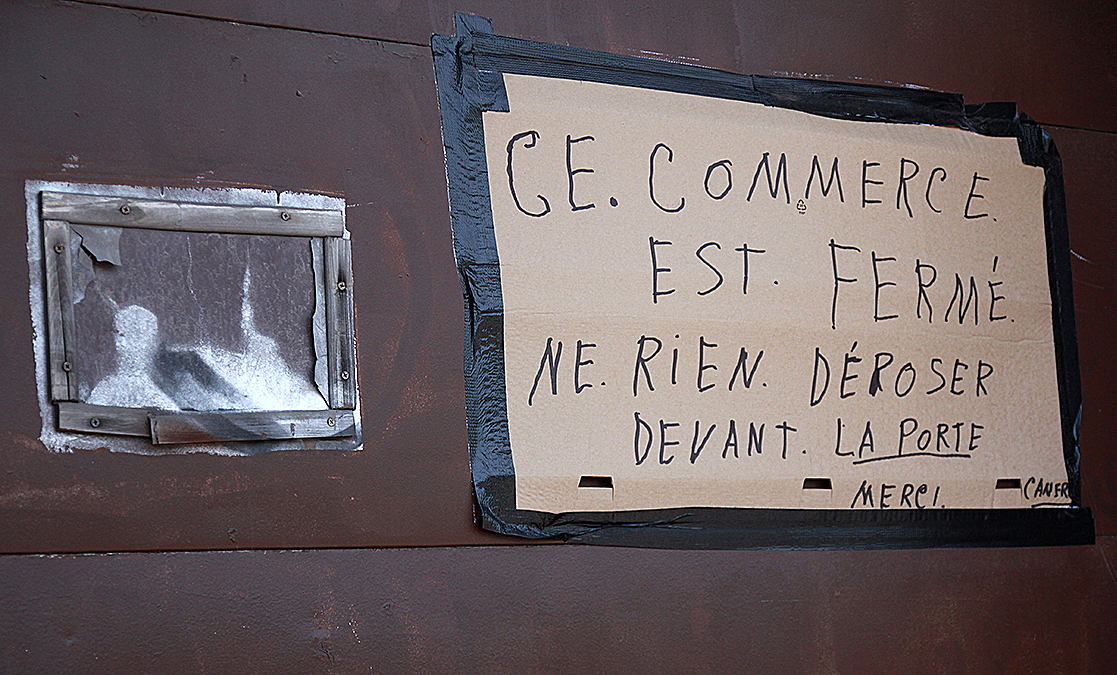 CE. COMMERCE.
EST. FERMÉ.
NE. RIEN. DÉPOSER
DEVANT. LA PORTE
MERCI.